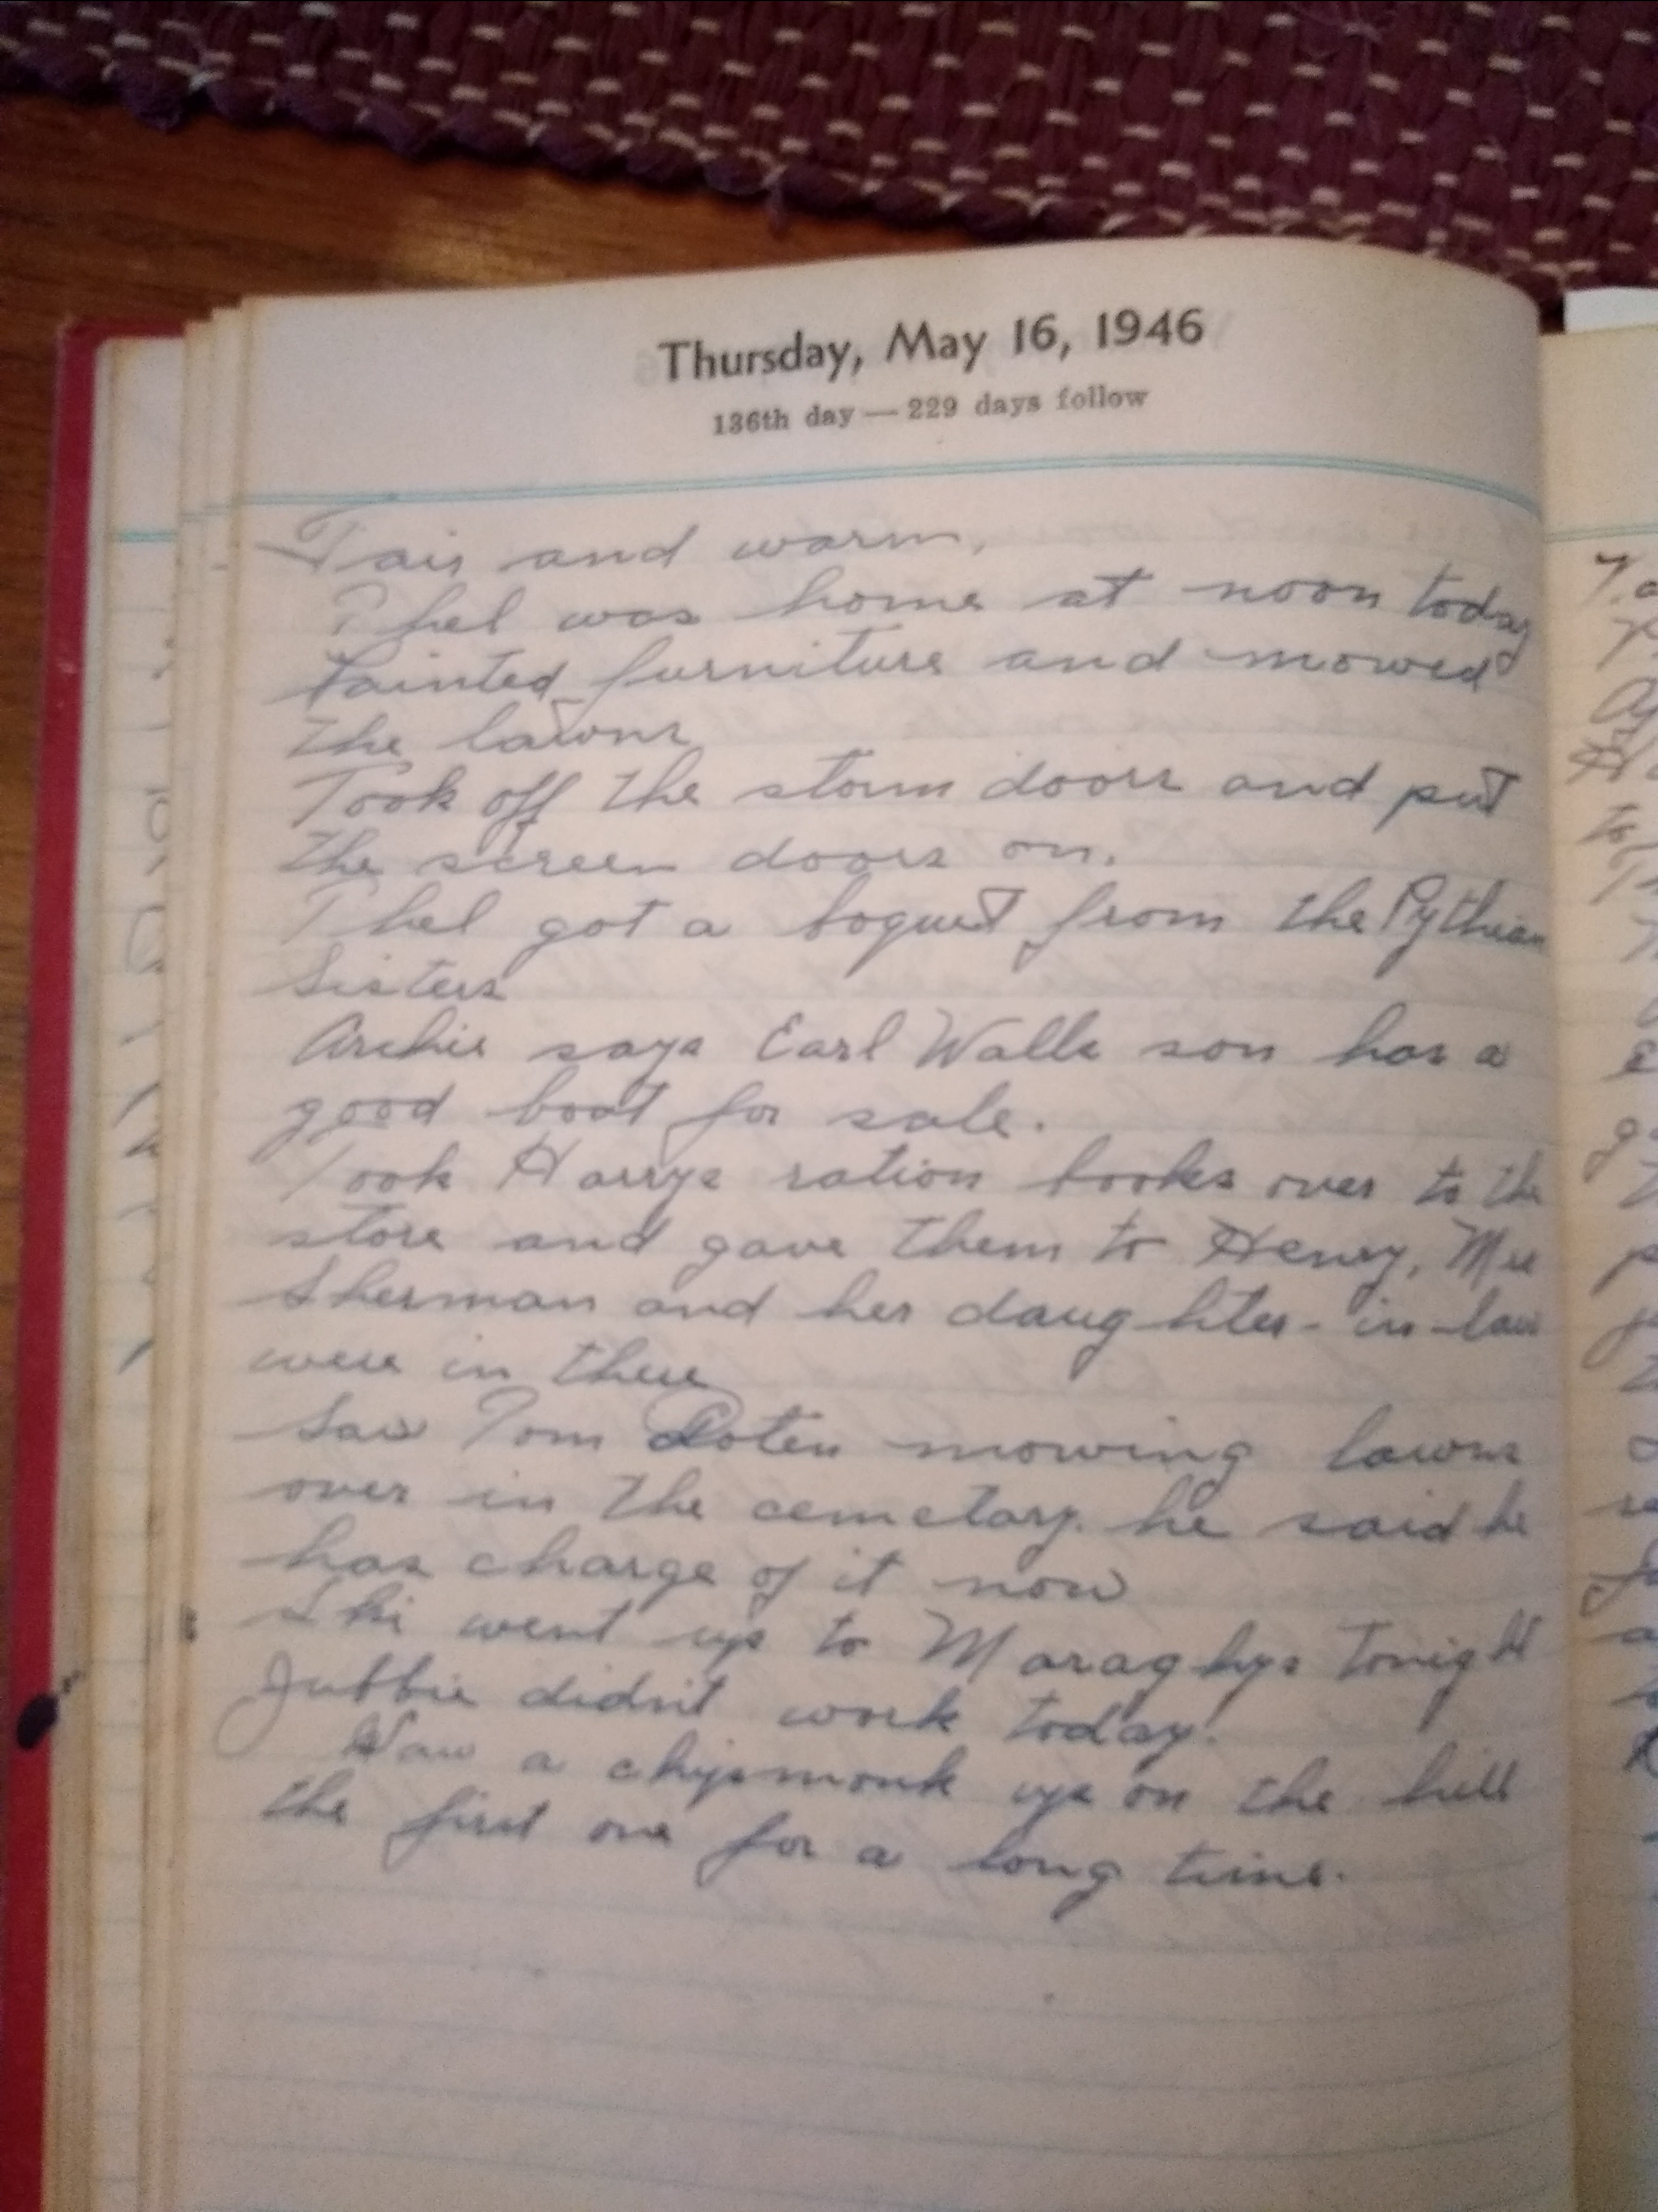 Thursday, May 16, 1946
136th day — 229 days follow
Fair and warm.
Phel was home at noon today
Painted furniture and mowed
the lawns
Took off the storm doors and put
the screen doors on.
Phel got a boquet from the Pythian
Sisters
Archie says Earl Walls son has a
good boat for sale.
Took Harrys ration books over to the
store and gave them to Henry, Mrs
Sherman and her daughter-in-law
were in there
Saw Tom Doten mowing lawns
over in the cemetary. he said he
has charge of it now
Ski went up to Maraghys tonight
Jubbie didn't work today.
Saw a chipmonk up on the hill
the first one for a long time.